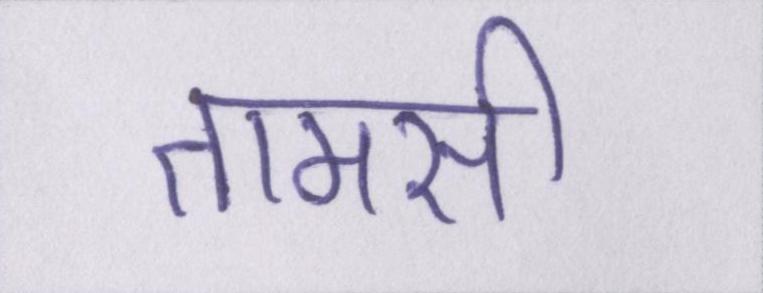 तामसी